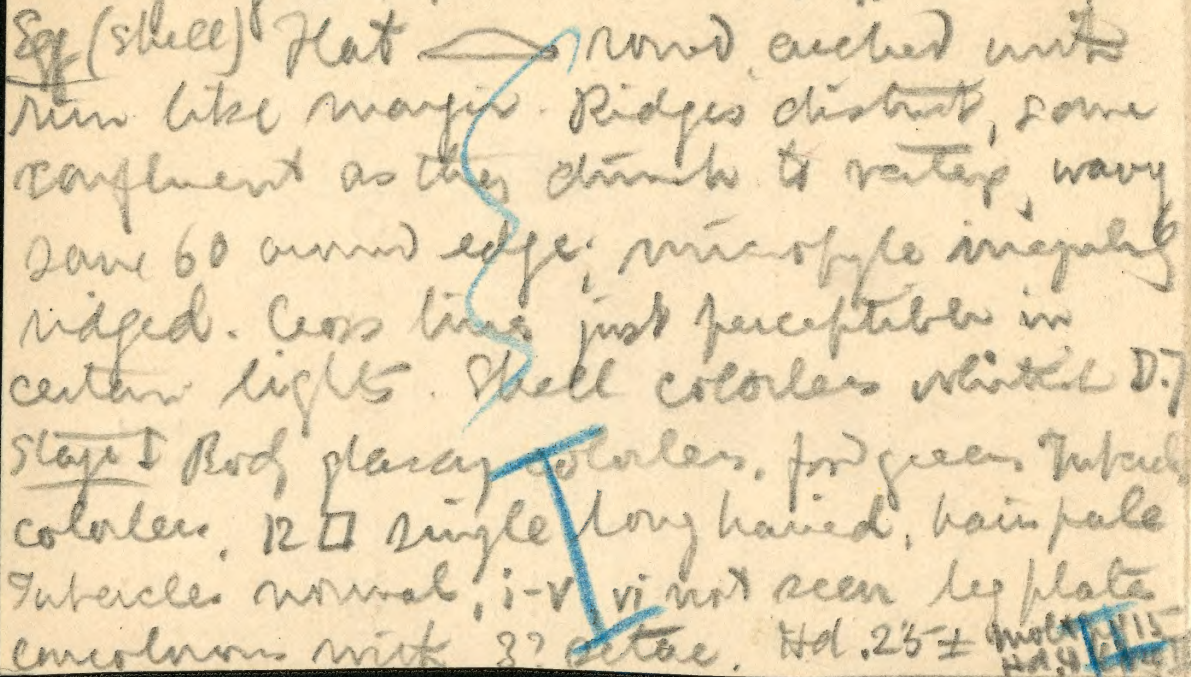 Egg (shell) Flat round arched with
rim like margin. Ridges distinct, some
confluent as they climb to vertex, wavy
some 60 around edge; micropyle irregularly
ridged. Cross lines just perceptible in
certain lights. Shell colorless whitish D.7
Stage I Body glassy colorless, food green Tubercles
colorless, 12 □ single long haired, hairs pale
Tubercles normal, i-v vi not seen leg plate
concolorous with 3? setae. Hd .25 ± molt 15
Hd
I II